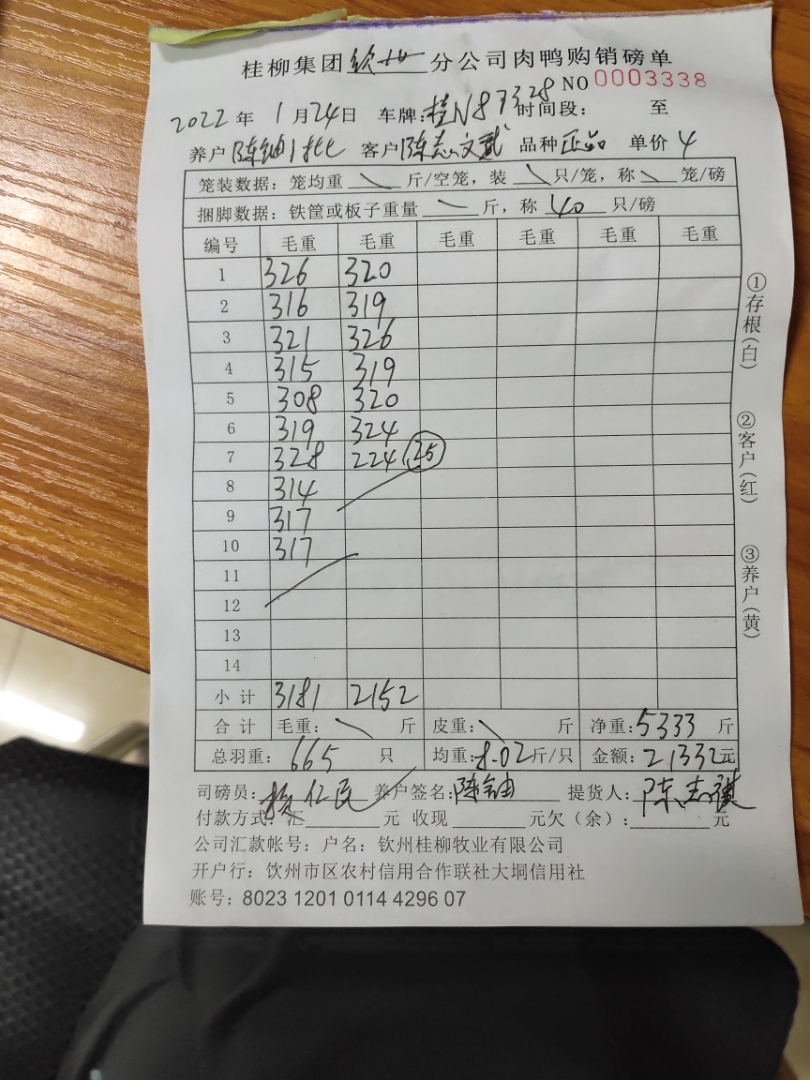 桂柳集团钦州分公司肉鸭购销磅单
NO 0003338
2022年 1月24日 车牌:桂N87328 时间段: 至
养户 陈铀1批 客户 陈志文 品种 正品 单价 4
笼装数据:笼均重 \ 斤/空笼,装 \ 只/笼,称 \ 笼/磅
捆脚数据:铁筐或板子重量 \ 斤,称 40 只/磅
编号 毛重 毛重 毛重 毛重 毛重 毛重
1 326 320
2 316 319
3 321 326
4 315 319
5 308 320
6 319 324
7 328 224 25
8 314
9 317
10 317
11
12
13
14
小计 3181 2152
合计 毛重: \ 斤 皮重: \ 斤 净重:5333 斤
总羽重: 665 只 均重:8.02斤/只 金额:21332元
司磅员: 仁民 养户签名:陈铀 提货人:陈志
付款方式:汇 元 收现 元欠(余):元
公司汇款帐号:户名:钦州桂柳牧业有限公司
开户行:饮州市区农村信用合作联社大垌信用社
账号:8023 1201 0114 4296 07
①存根(白)
②客户(红)
③养户(黄)